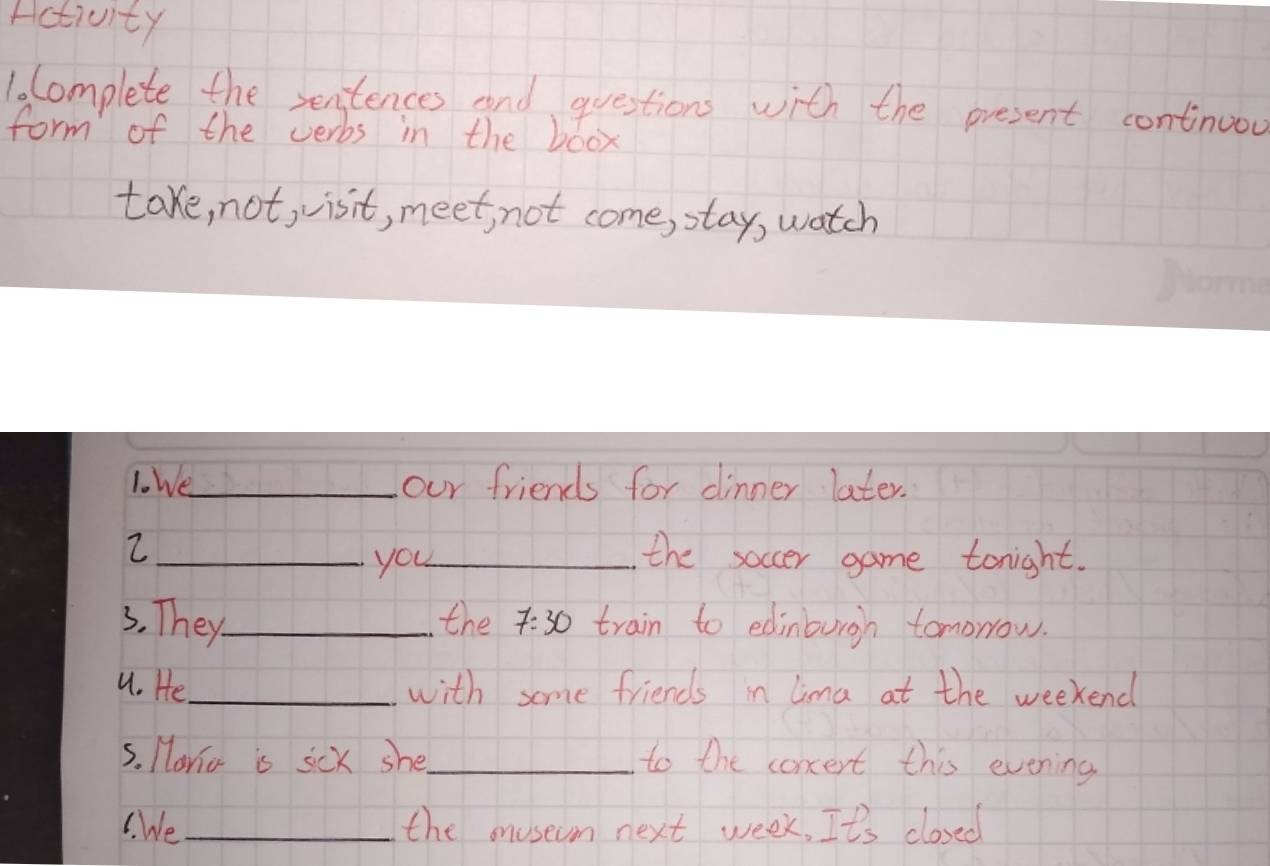 Activity
1. Complete the sentences and questions with the present continuou
form of the verbs in the boox
take, not, visit, meet, not come, stay, watch
Norma
1. We__________.our friends for dinner later.
2__________.you__________.the soccer game tonight.
3. They__________.the 7:30 train to edinburgh tomorrow.
4. He__________.with some friends in lima at the weekend
5. María is sick she__________.to the concert this evening
6. We__________the museum next week. It's closed